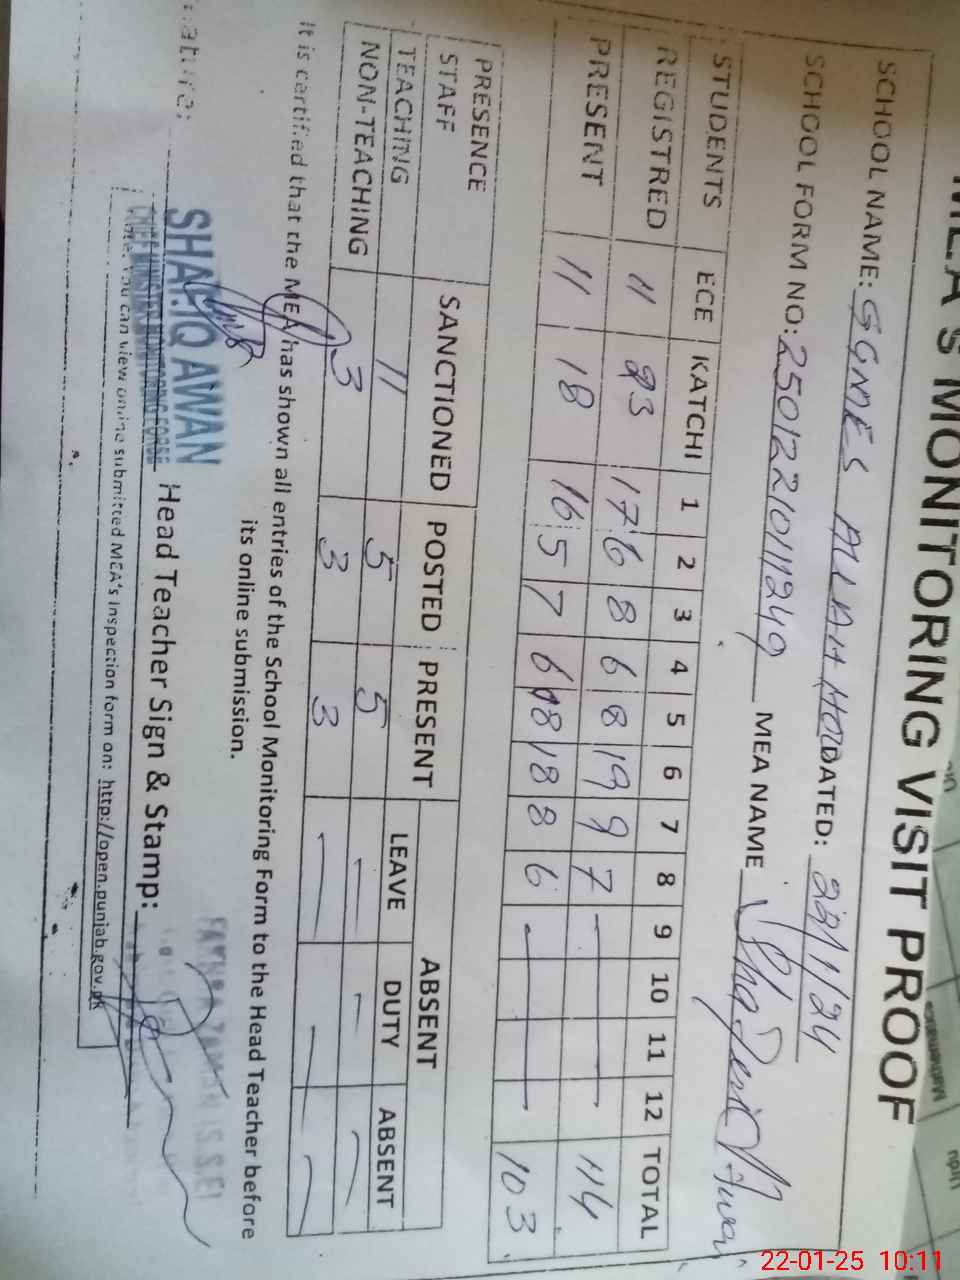 MEA'S MONITORING VISIT PROOF
SCHOOL NAME: GGMES ALLAH DATED: 22/1/24
SCHOOL FORM NO: 25012210111249 MEA NAME Awan
STUDENTS ECE KATCHI 1 2 3 4 5 6 7 8 9 10 11 12 TOTAL
REGISTRED 11 23 17 6 8 6 8 19 9 7 114
PRESENT 11 18 16 5 7 6 8 18 8 6 103
PRESENCE
STAFF SANCTIONED POSTED PRESENT ABSENT
LEAVE DUTY ABSENT
TEACHING 11 5 5 — — —
NON-TEACHING 3 3 3 — — —
It is certified that the MEA has shown all entries of the School Monitoring Form to the Head Teacher before
its online submission.
SHAFIQ AWAN
CHIEF MINISTER MONITORING FORCE
Head Teacher Sign & Stamp:
Note: You can view online submitted MEA's Inspection form on: http://open.punjab.gov.pk
22-01-25 10:11